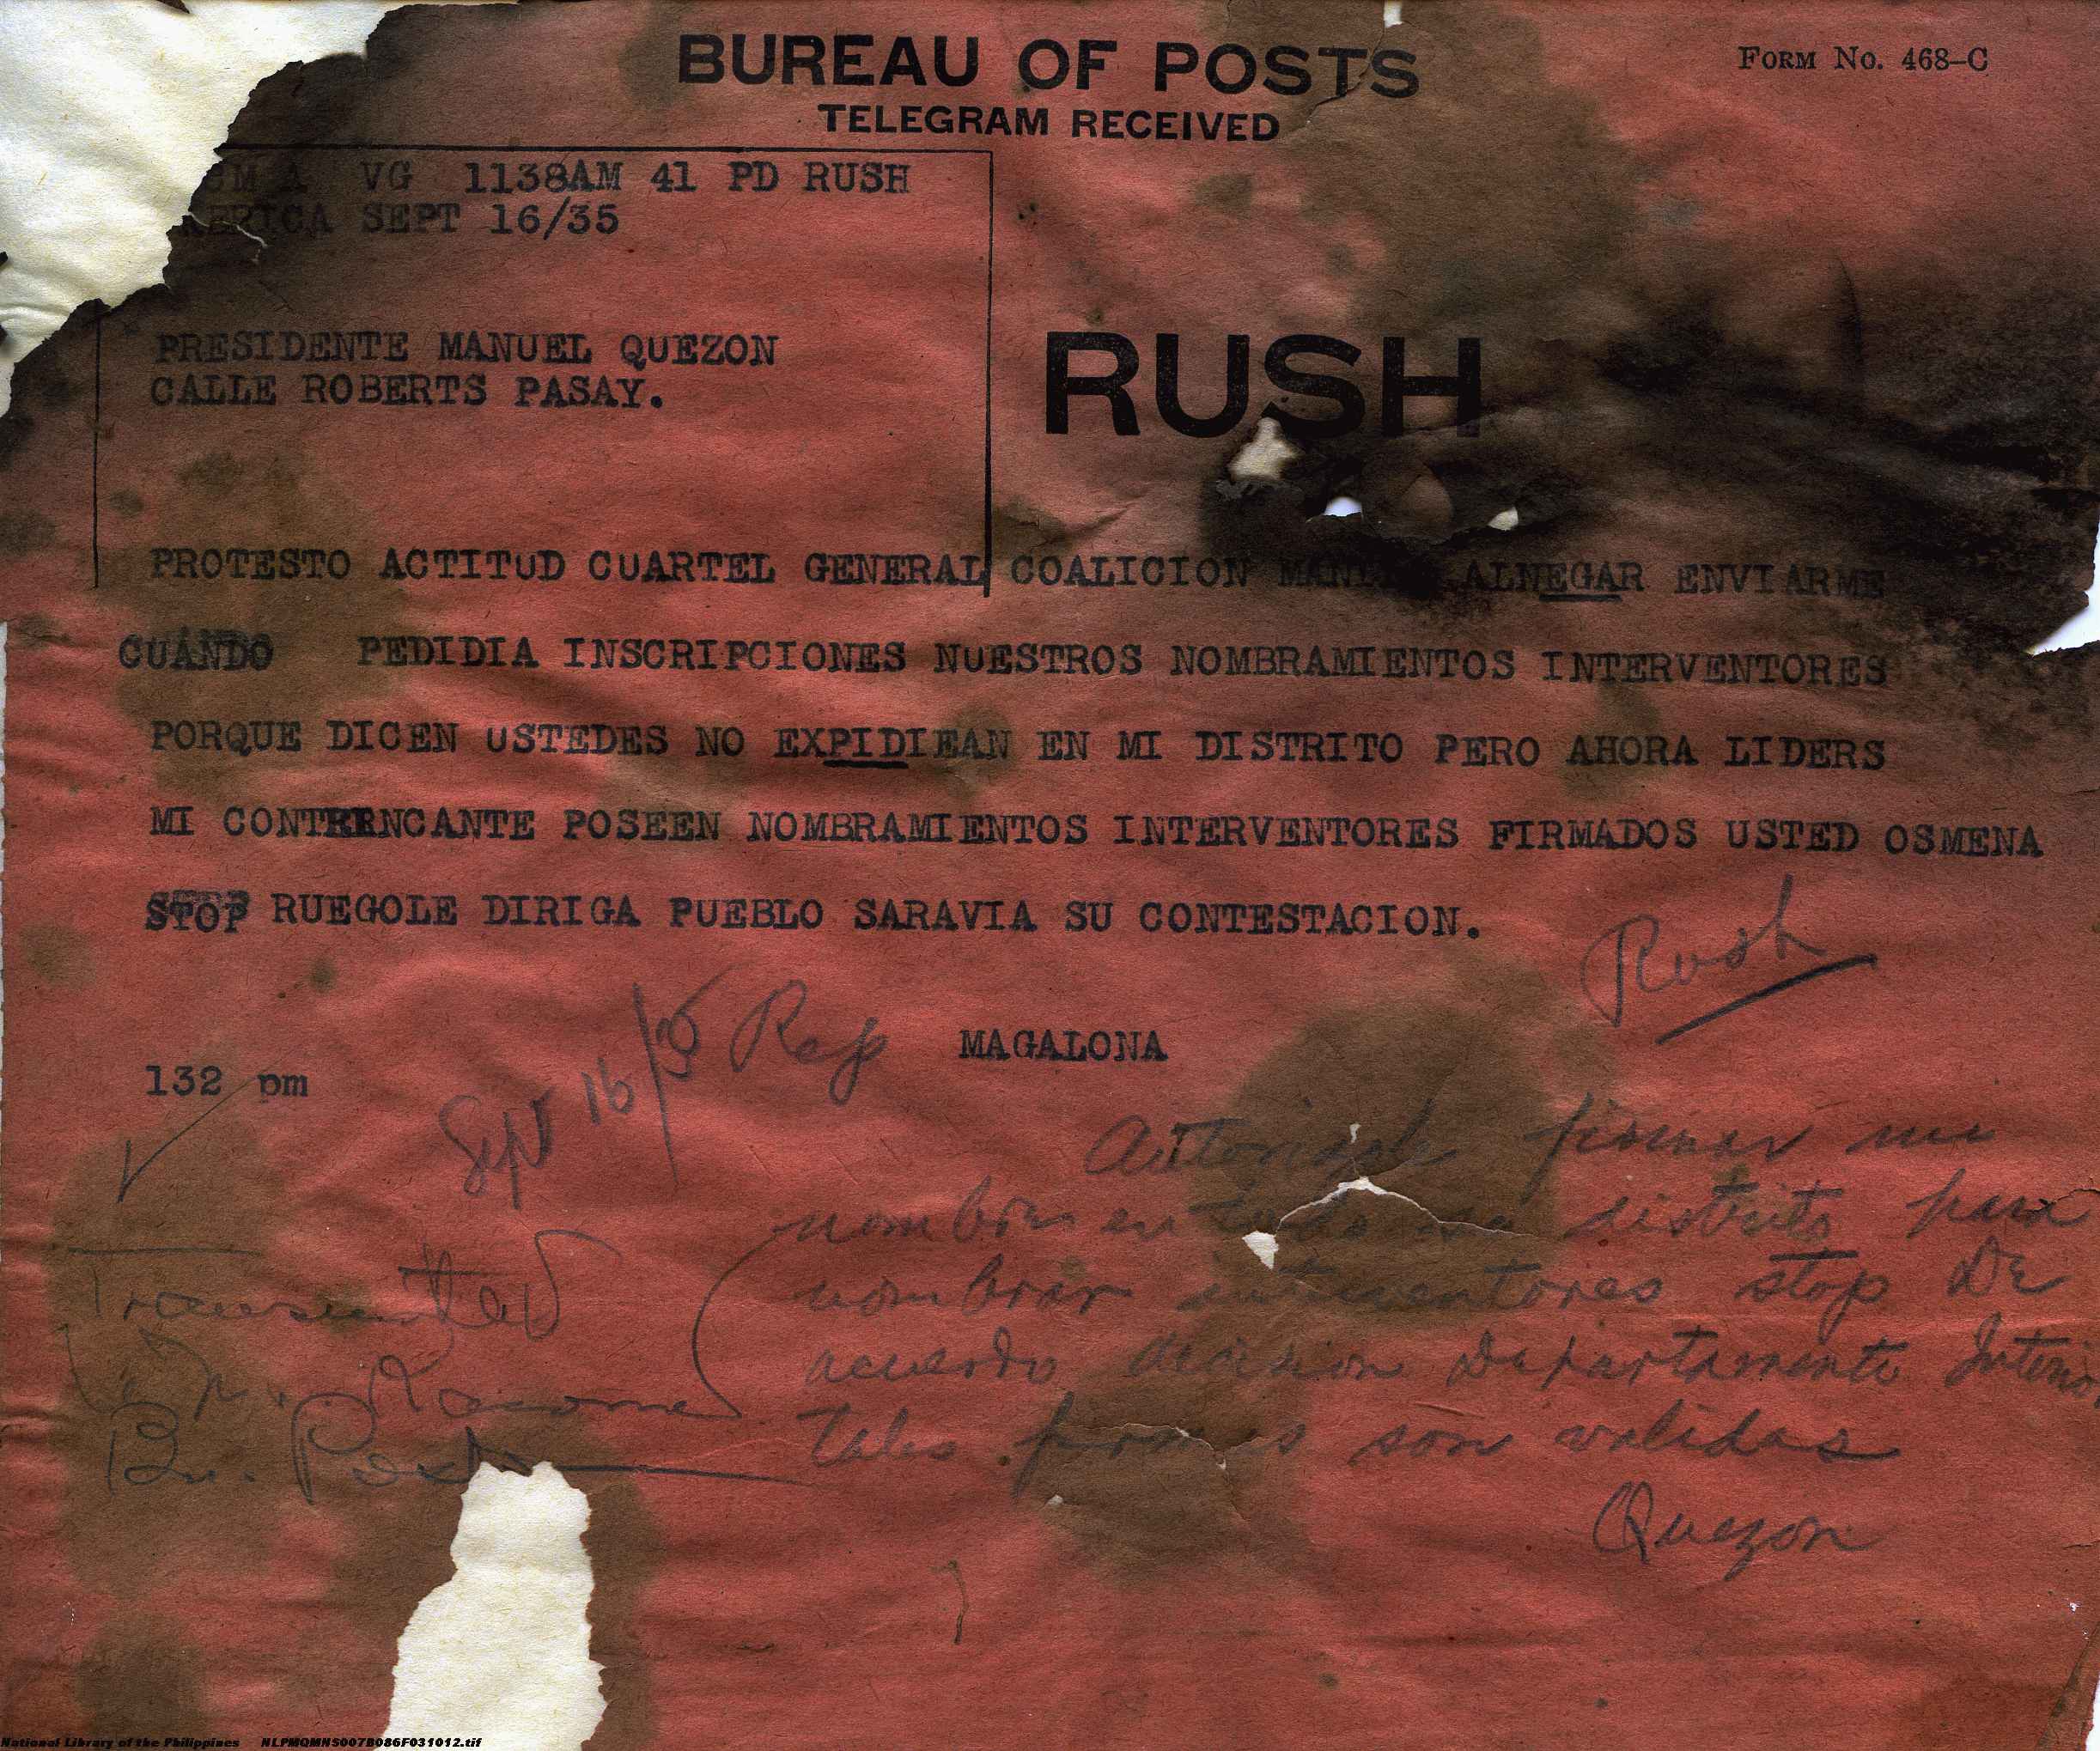 BUREAU OF POSTS
TELEGRAM RECEIVED
FORM NO. 468-C
VG 1138AM 41 PD RUSH
SEPT 16/35
PRESIDENTE MANUEL QUEZON
CALLE ROBERTS PASAY.
RUSH
PROTESTO ACTITUD CUARTEL GENERAL COALICION ALNEGAR ENVIARME
CUANDO PEDIDIA INSCRIPCIONES NUESTROS NOMBRAMIENTOS INTERVENTORES
PORQUE DICEN USTEDES NO EXPIDIEAN EN MI DISTRITO PERO AHORA LIDERS
MI CONTRENCANTE POSEEN NOMBRAMIENTOS INTERVENTORES FIRMADOS USTED OSMENA
STOP RUEGOLE DIRIGA PUEBLO SARAVIA SU CONTESTACION.
Rush
Sept 16/35 Rep MAGALONA
132 pm
Autorizole firmar mi
nombre en todo su distrito para
nombrar interventores stop De
acuerdo decision Departamento
tales firmas son validas
Quezon
Transmitted
Bu. Posts
National Library of the Philippines NLPMQMNS007B086F031012.tif